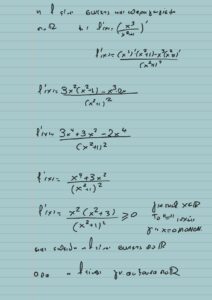 η f είναι συνεχής και παραγωγίσιμη
στο ℝ με f'(x) = (x³/(x²+1))'
f'(x) = ((x³)'(x²+1) - x³(x²+1)')/(x²+1)²
f'(x) = (3x²(x²+1) - x³2x)/(x²+1)²
f'(x) = (3x⁴+3x²-2x⁴)/(x²+1)²
f'(x) = (x⁴+3x²)/(x²+1)²
f'(x) = x²(x²+3)/(x²+1)² ≥ 0 για κάθε x∈ℝ
το "=" ισχύει
για x=0
και επειδή η f είναι συνεχής στο ℝ
άρα η f είναι γν. αύξουσα στο ℝ